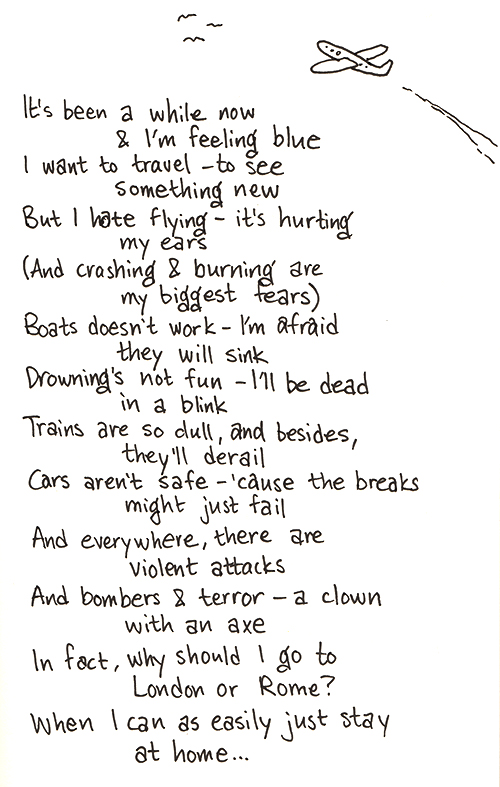 It's been a while now
& I'm feeling blue
I want to travel – to see
something new
But I hate flying – it's hurting
my ears
(And crashing & burning are
my biggest fears)
Boats doesn't work – I'm afraid
they will sink
Drowning's not fun – I'll be dead
in a blink
Trains are so dull, and besides,
they'll derail
Cars aren't safe – 'cause the breaks
might just fail
And everywhere, there are
violent attacks
And bombers & terror – a clown
with an axe
In fact, why should I go to
London or Rome?
When I can as easily just stay
at home...